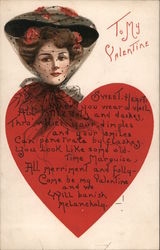 To My
Valentine
Sweet Heart
When you wear a veil
All dots and dashes,
thro' which your dimples
and your smiles
Can penetrate by flashes,
You look like some old
Time Marquise,
All merriment and folly—
Come be my Valentine
and we
Will banish
melancholy.